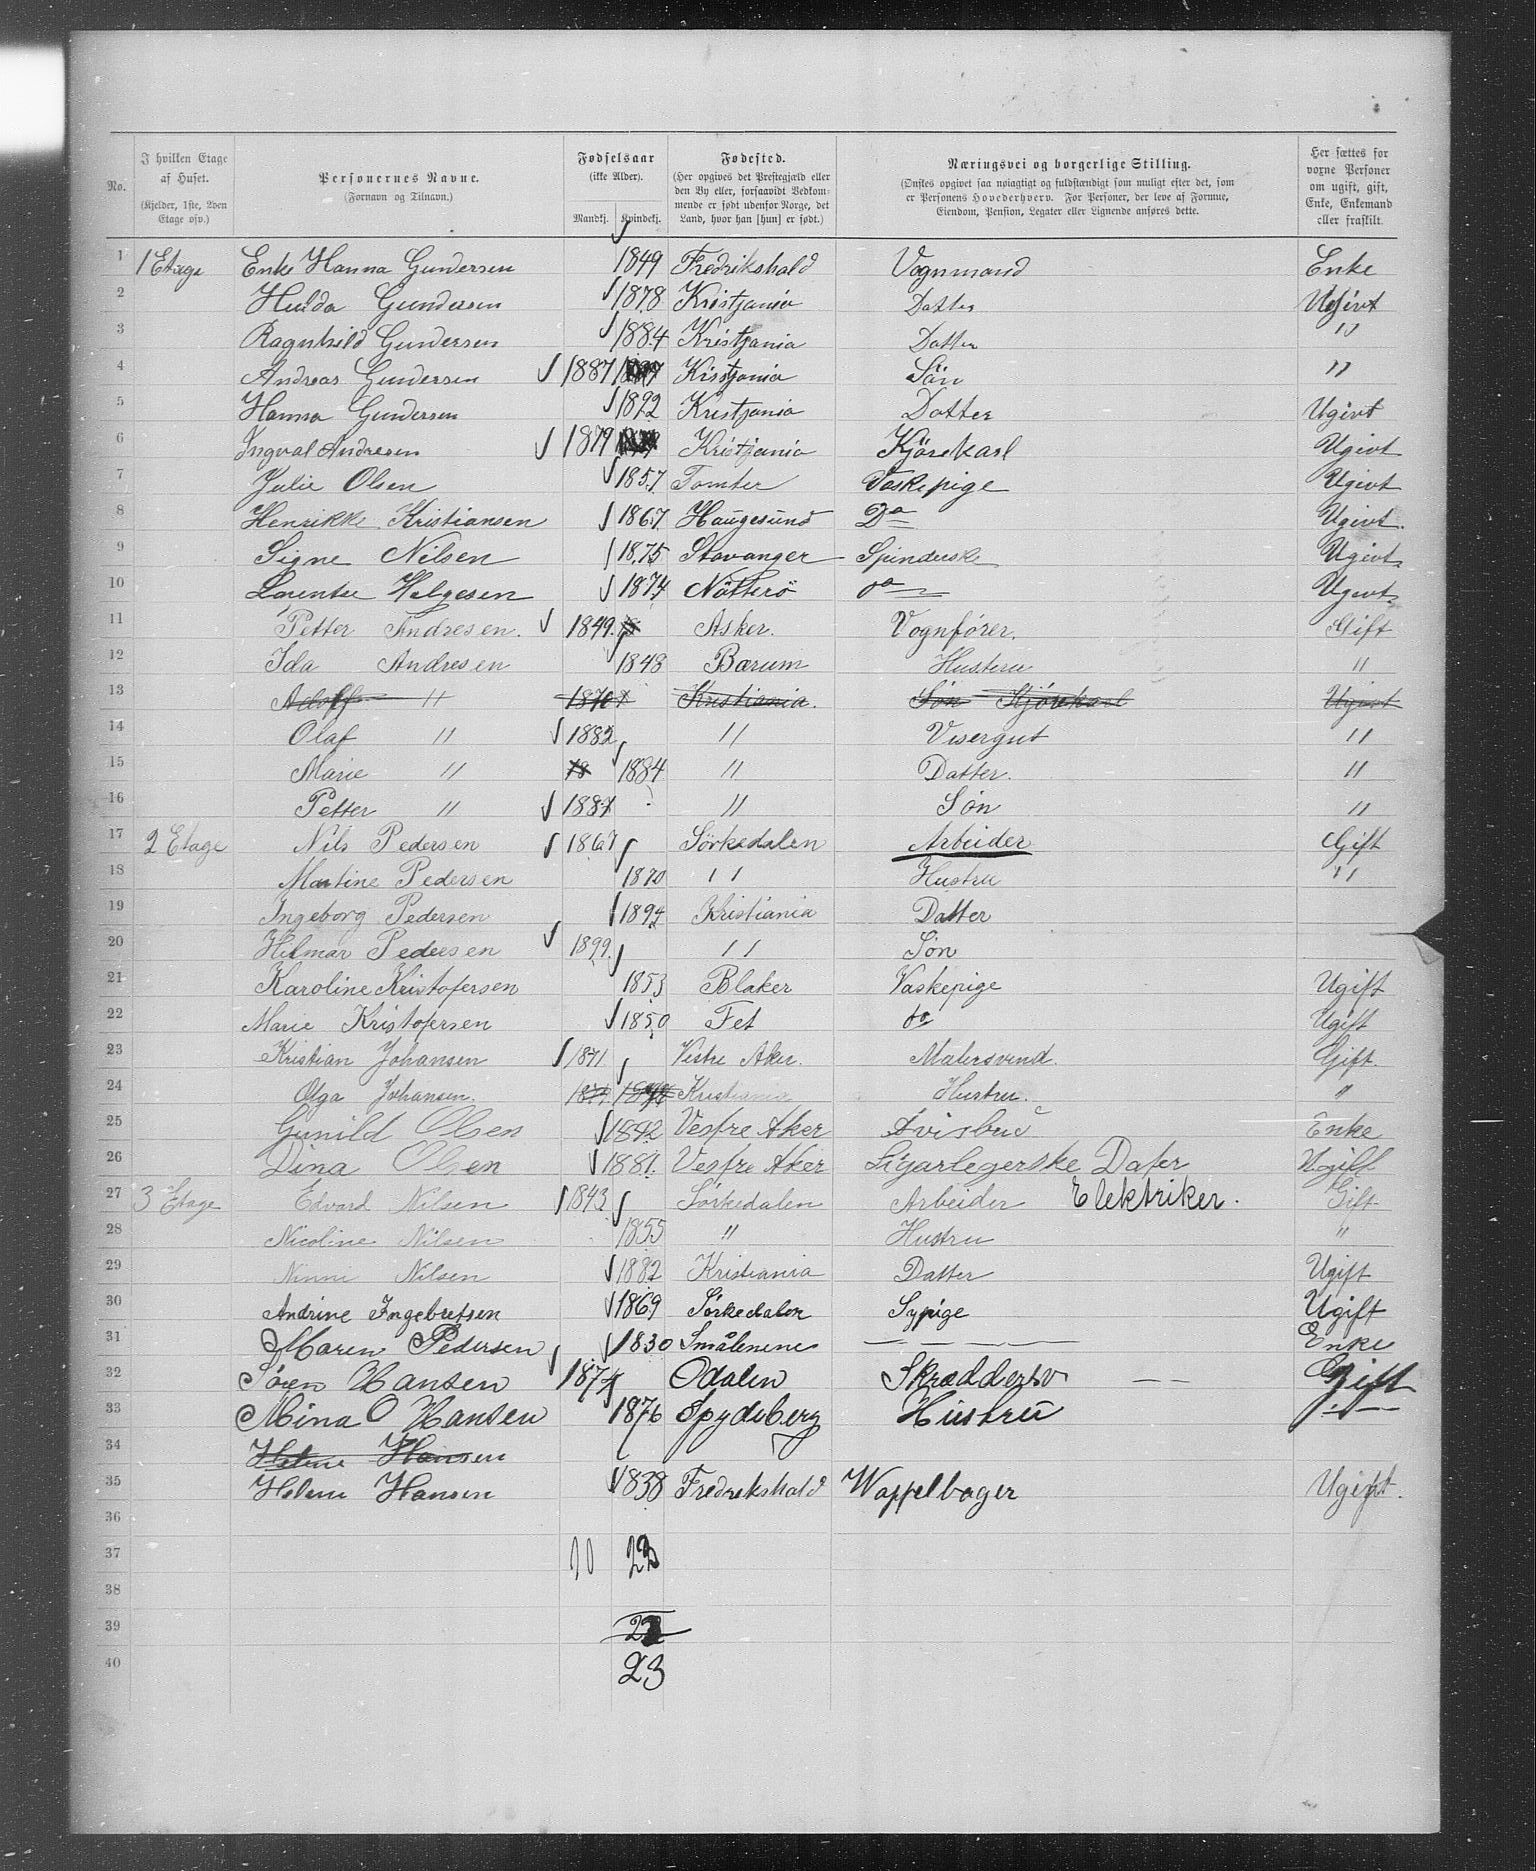 No.
I hvilken Etage af Huset. (Kjelder, 1ste, 2den Etage osv.)
Personernes Navne. (Fornavn og Tilnavn.)
Fødselsaar (ikke Alder). Mandkj. Kvindekj.
Fødested. (Her opgives det Prestegjæld eller den By eller, forsaavidt Vedkommende er født udenfor Norge, det Land, hvor han [hun] er født.)
Næringsvei og borgerlige Stilling. (Ønskes opgivet saa nøiagtigt og fuldstændigt som muligt efter det, som er Personens Hovederhverv. For Personer, der leve af Formue, Eiendom, Pension, Legater eller Lignende anføres dette.
Her sættes for voxne Personer om ugift, gift, Enke, Enkemand eller fraskilt.
1 1 Etage Enke Hanna Gundersen 1849 Fredrikshald Vognmand Enke
2 Hulda Gundersen 1878 Kristjania Datter Ugivt
3 Ragnhild Gundersen 1884 Kristjania Datter "
4 Andreas Gundersen 1887 Kristjania Sön "
5 Hanna Gundersen 1892 Kristjania Datter Ugivt
6 Ingval Andresen 1879 Kristjania Kjörekarl Ugivt
7 Julie Olsen 1857 Tomter Vaskepige Ugivt
8 Henrikke Kristiansen 1867 Haugesund Do Ugivt
9 Signe Nilsen 1875 Stavanger Spinderske Ugivt
10 Lorentse Helgesen 1874 Nötterö do Ugivt
11 Petter Andresen. 1849. Asker. Vognfører. Gift
12 Ida Andresen 1848 Bærum Husteru "
13 Adolf " 1870 Kristiania. Søn Kjörekarl Ugivt
14 Olaf " 1882 " Visergut "
15 Marie " 18 1884 " Datter. "
16 Petter " 1887 " Søn "
17 2 Etage Nils Pedersen 1867 Sörkedalen Arbeider Gift
18 Martine Pedersen 1870 " Hustru "
19 Ingeborg Pedersen 1894 Kristiania Datter
20 Hilmar Pedersen 1899 " Søn
21 Karoline Kristofersen 1853 Blaker Vaskepige Ugift
22 Marie Kristofersen 1850 Fet do Ugift
23 Kristian Johansen 1871 Vestre Aker. Malersvend. Gift.
24 Olga Johansen. Kristiania Hustru. "
25 Gunild Olsen 1842 Vestre Aker Avisbud Enke
26 Dina Olsen 1881 Vestre Aker Sigarlegerske Dater Ugift
27 3 Etage Edvard Nilsen 1843 Sørkedalen Arbeider Elektriker. Gift
28 Nicoline Nilsen 1855 " Hustru "
29 Ninni Nilsen 1882 Kristiania Datter Ugift
30 Andrine Ingebretsen 1869 Sørkedalen Sypige Ugift
31 Maren Pedersen 1830 Smålenene — Enke
32 Sören Hansen 1874 Odalen Skrædder — — Gift
33 Mina O Hansen 1876 Spydeberg Hustru — " —
34 Helene Hansen
35 Helene Hansen 1838 Fredrekshald Waffelbager Ugift.
36
37 10 22
38
39 22
40 23